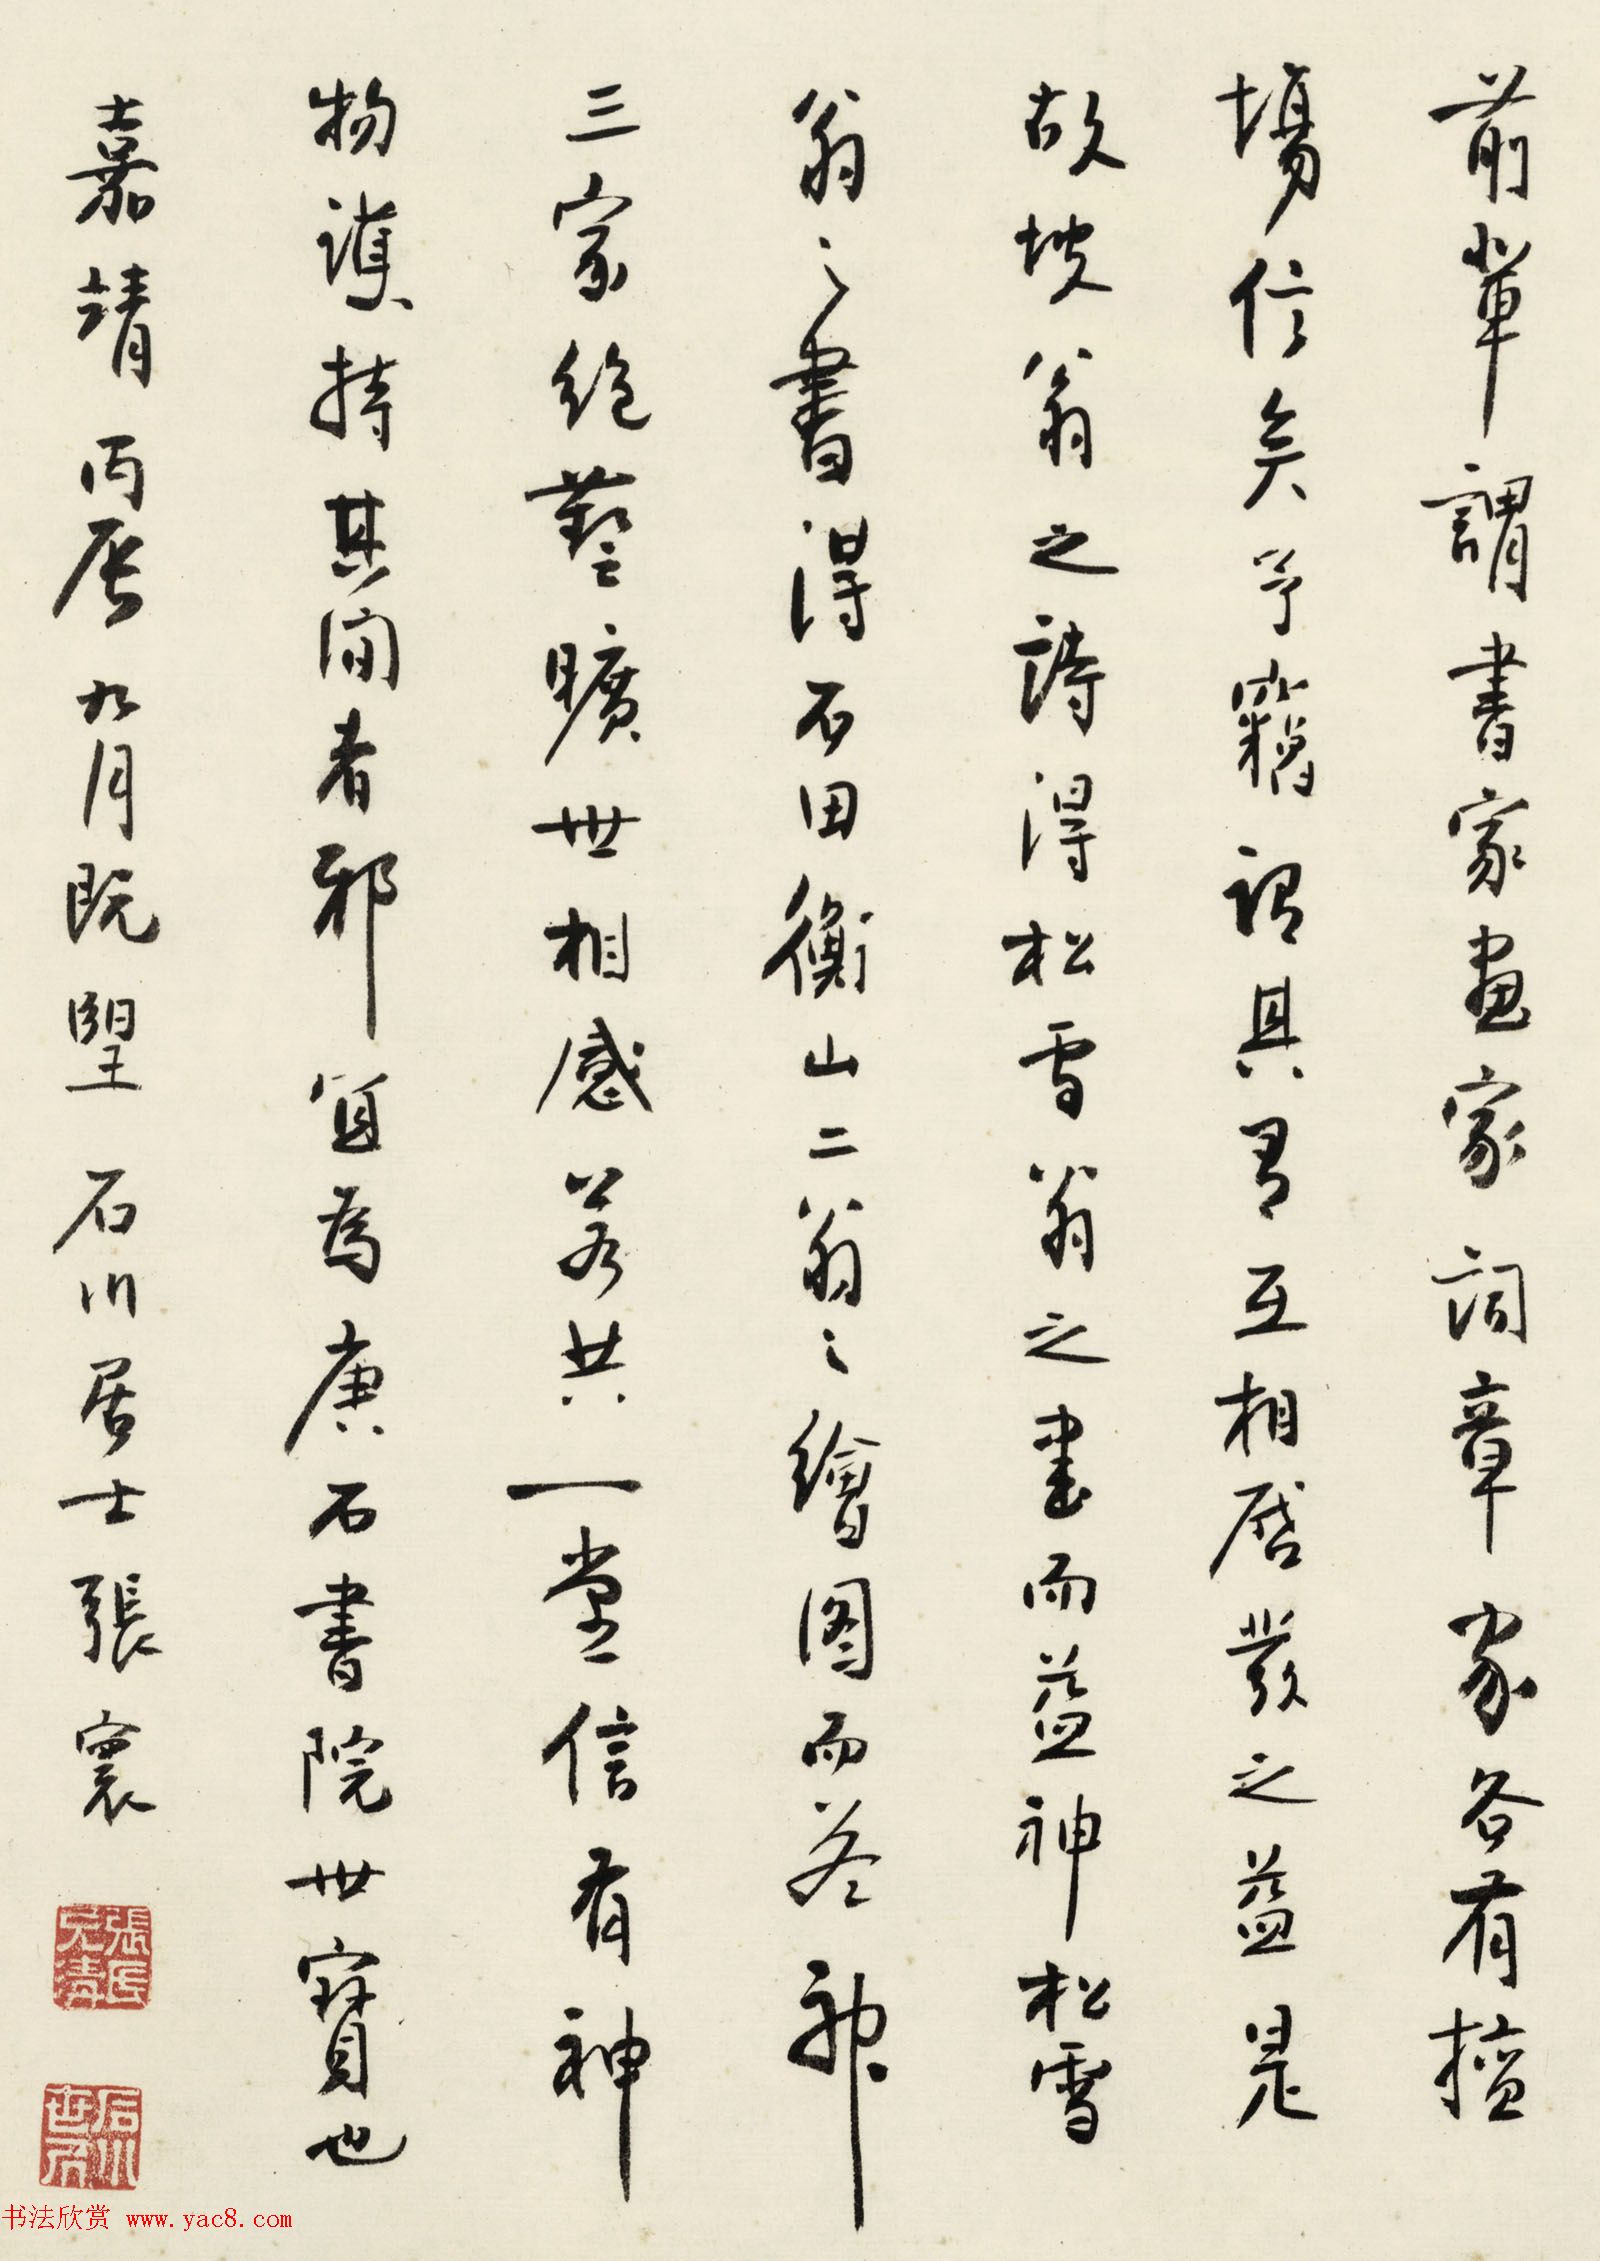 前輩謂書家畫家詞章家各有擅
場信矣予竊謂具有互相啓發之益是
故坡翁之詩得松雪翁之書而益神松雪
翁之書得石田衡山二翁之繪圖而益神
三家絶藝曠世相感若共一堂信有神
物護持其間者邪宜為庚石書院世寶也
嘉靖丙辰九月既望石川居士張寰
張氏
允清
石川
世居
书法欣赏 www.yac8.com